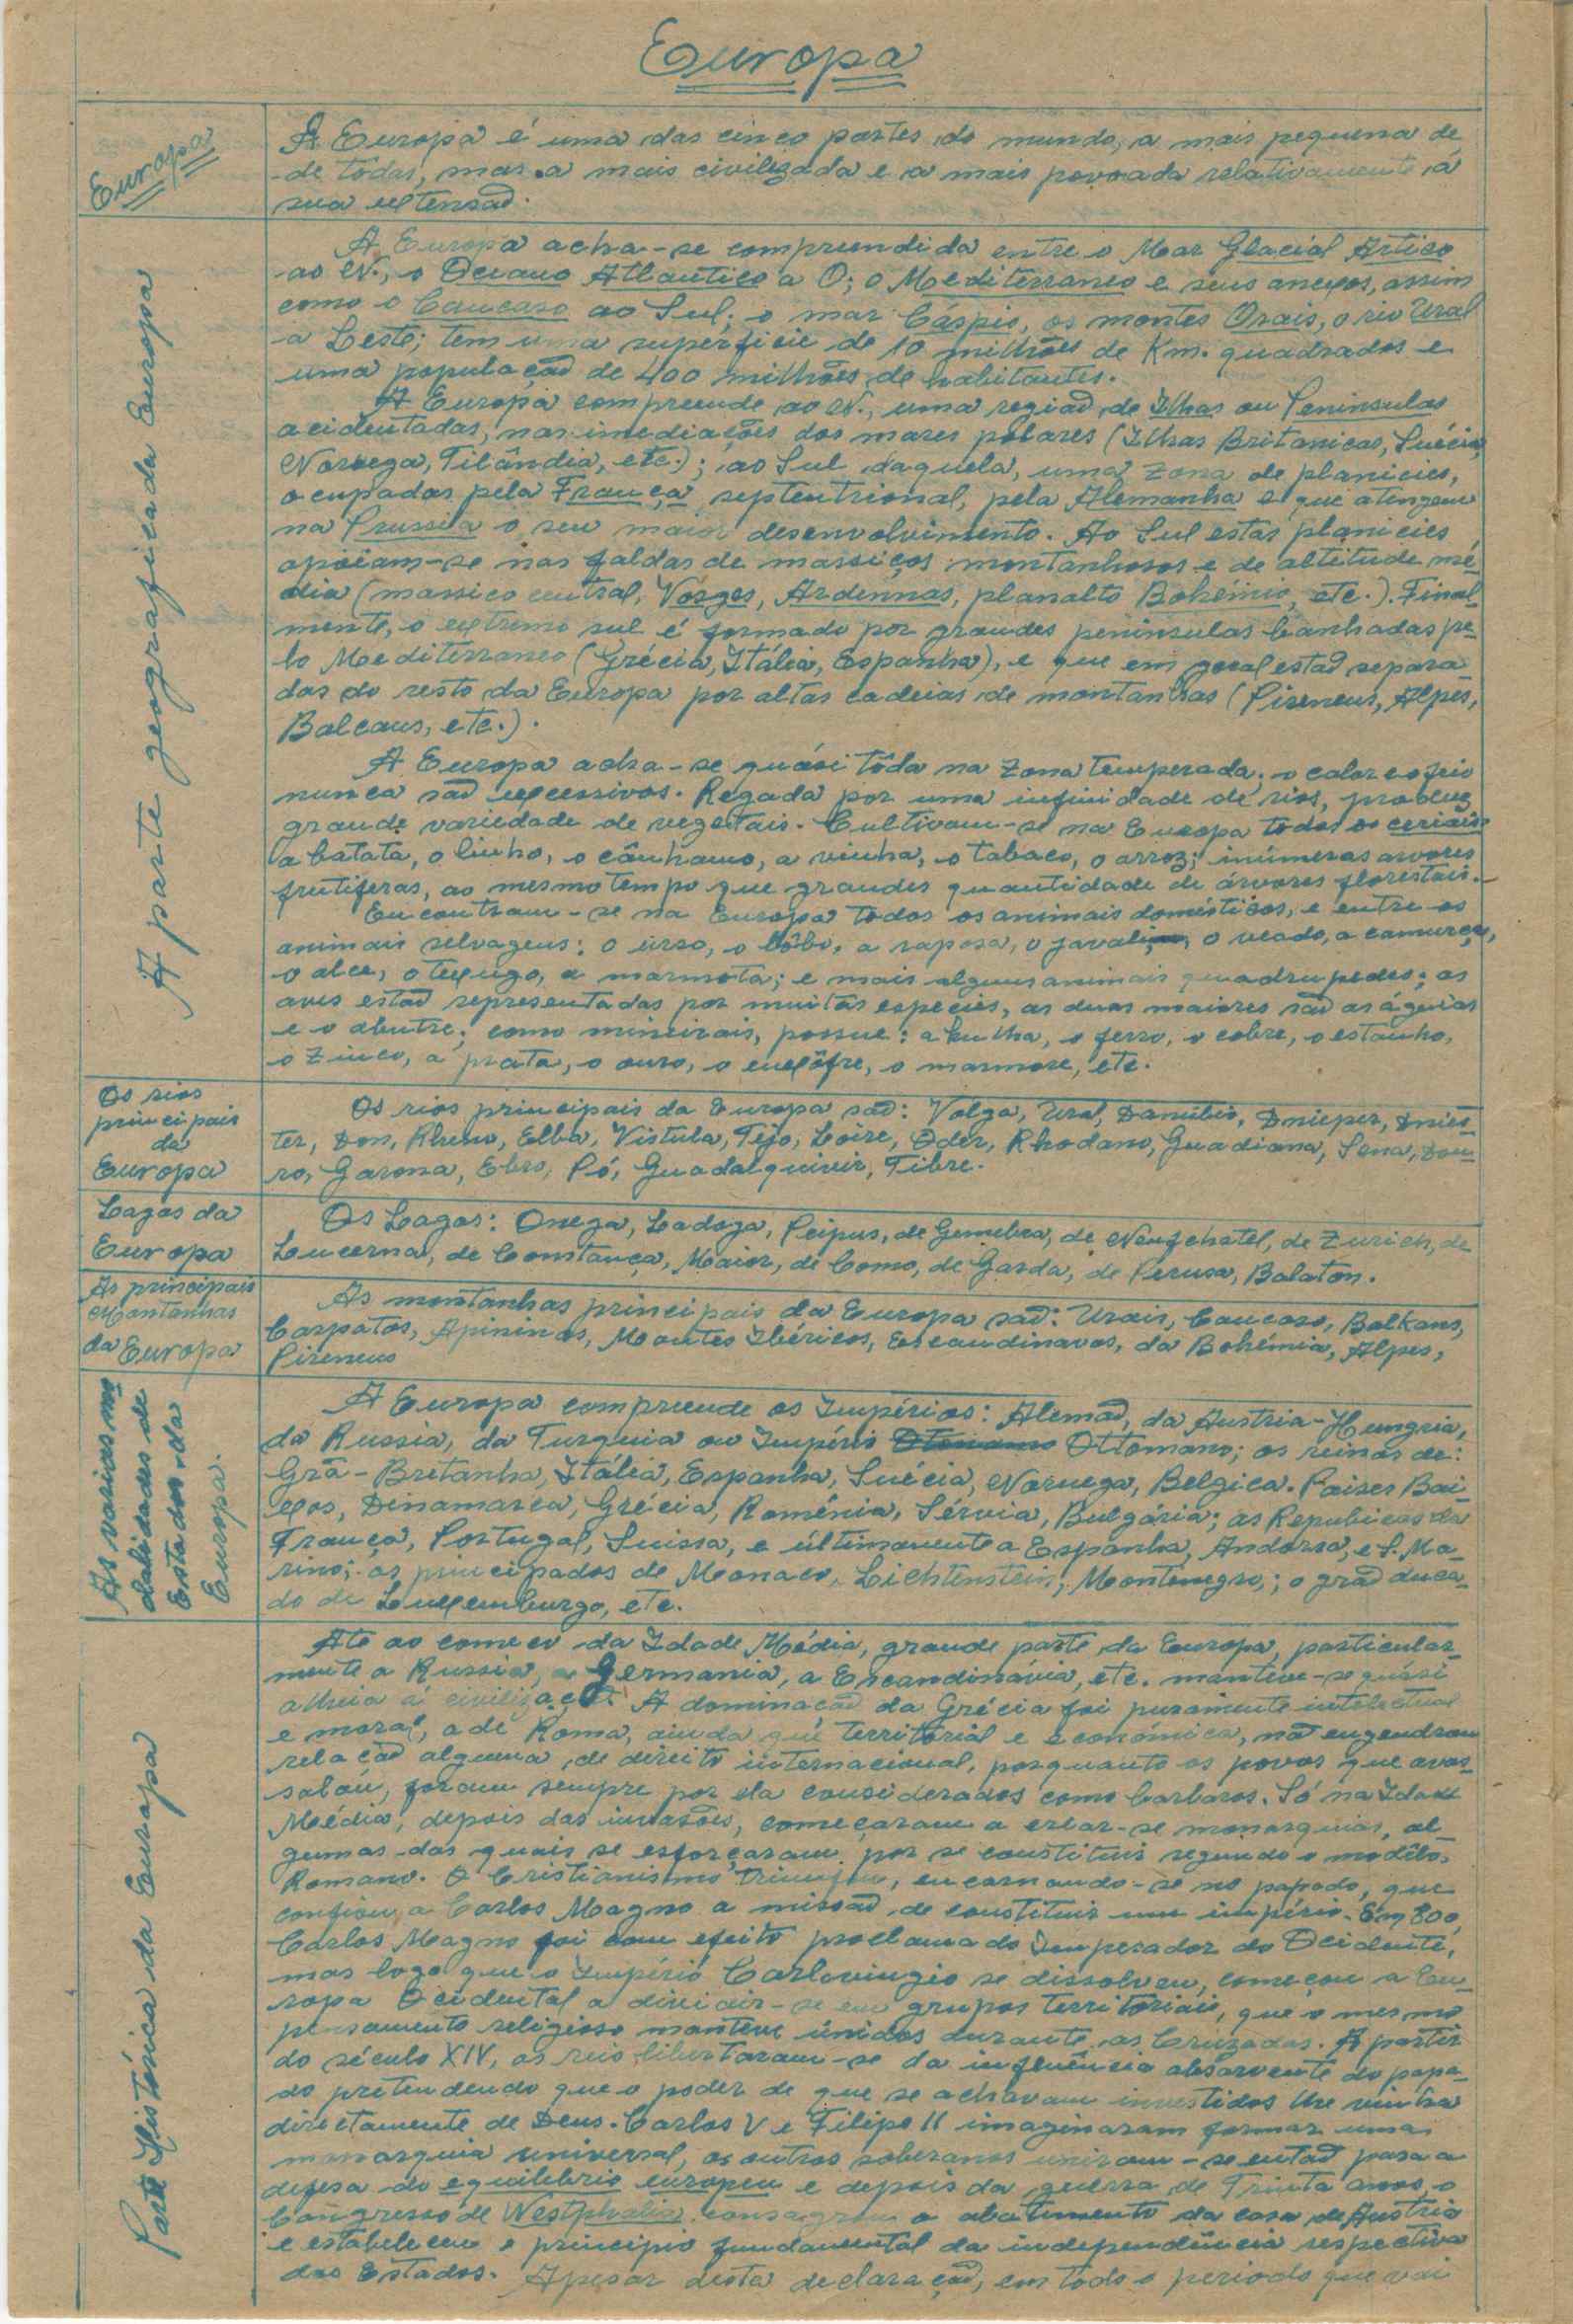 Europa
Europa
A Europa é uma das cinco partes do mundo, a mais pequena de
de todas, mas a mais civilizada e a mais povoada relativamente á
sua extensaõ.
A parte geografica da Europa
A Europa acha-se compreendida entre o Mar Glacial Artico
ao N., o Oceano Atlantico a O; o Mediterraneo e seus anexos, assim
como o Caucaso ao Sul; o mar Cáspio, os montes Orais, o rio Ural
a Leste; tem uma supérficie de 10 milhões de Km. quadrados e
uma populaçaõ de 400 milhões de habitantes.
A Europa compreende ao N., uma regiaõ de Ilhas ou Peninsulas
acidentadas, nas imediações dos mares polares (Ilhas Britanicas, Suécia,
Noruega, Filândia, etc.); ao Sul daquela, uma zona de planicies,
ocupadas pela França septentrional, pela Alemanha e que atengem
na Prussia o seu maior desenvolvimento. Ao Sul estas planicies
apóiam-se nas faldas de massiços montanhosos e de altitude mé-
dia (massico central, Vósges, Ardennas, planalto Bohémio, etc.). Final-
mente, o extremo sul é formado por grandes peninsulas banhadas pe-
lo Mediterraneo (Grécia, Itália, Espanha), e que em geral estaõ separa-
das do resto da Europa por altas cadeias de montanhas (Pireneus, Alpes,
Balcans, etc.).
A Europa acha-se quási tôda na zona temperada; o calor e o frio
nunca saõ excessivos. Regada por uma infinidade de rios, produz
grande variedade de vegetais. Cultivam-se na Europa todos os ceriais
a batata, o linho, o cânhamo, a vinha, o tabaco, o arroz; inúmeras arvores
frutiferas, ao mesmo tempo que grandes quantidade de árvores florestais.
Encontram-se na Europa todos os animais domésticos, e entre os
animais selvagens: o urso, o lôbo, a raposa, o javali, o veado, a camurça,
o alce, o texugo, a marmota; e mais alguns animais quadrupedes; as
aves estaõ representadas por muitas espécies, as duas maiores saõ as águias
e o abutre; como minerais, possue: a hulha, o ferro, o cobre, o estanho,
o zinco, a prata, o ouro, o enxôfre, o marmore, etc.
Os rios
principais
da
Europa
Os rios principais da Europa saõ: Volga, Ural, Danúbio, Dnieper, Dnies-
ter, Don, Rheno, Elba, Vistula, Tejo, Loire, Oder, Rhodano, Guadiana, Sena, Dou-
ro, Garona, Ebro, Pó, Guadalquivir, Tibre.
Lagos da
Europa
Os Lagos: Onega, Ladoga, Peipus, de Genebra, de Neufchatel, de Zurich, de
Loucerna, de Constança, Maior, de Como, de Garda, de Perusa, Balaton.
As principais
Montanhas
da Europa
As montanhas principais da Europa saõ: Urais, Caucaso, Balkans,
Carpatos, Apininos, Montes Ibéricos, Escandinavos, da Bohémia, Alpes,
Pireneus
As varias mo
dalidades de
Estados da
Europa.
A Europa compreende os Impérios: Alemaõ, da Austria-Hungria,
da Russia, da Turquia ou Império Ottomano; os reinos de:
Grã-Bretanha, Itália, Espanha, Suécia, Noruega, Belgica. Paises Bai-
xos, Dinamarca, Grécia, Roménia, Sérvia, Bulgária; as Republicas da
França, Portugal, Suissa, e últimamente a Espanha, Andorra, e S. Ma-
rino; os principados de Monaco, Lichtenstein, Montenegro; o graõ duca-
do de Luxemburgo, etc.
Parte Histórica da Europa
Até ao começo da Idade Média, grande parte da Europa, particular-
mente a Russia, a Germania, a Escandinávia, etc. manteve-se quási
alheia á civilização. A dominaçaõ da Grécia foi puramente intelectual
e moral, a de Roma, ainda que territorial e económica, naõ engendrou
relaçaõ alguma de direito internacional, porquanto os povos que avas-
salou, foram sempre por ela considerados como barbaros. Só na Idade
Média, depois das invasões, começaram a criar-se monarquias, al-
gumas das quais se esforçaram por se constituir segundo o modêlo,
Romano. O Cristianismo triunfou, encarnando-se no papado, que
confiou a Carlos Magno a missaõ de constituir um império. Em 800,
Carlos Magno foi com efeito proclamado Imperador do Ocidente,
mas logo que o Império Carlovingio se dissolveu, começou a Eu-
ropa Ocidental a dividir-se em grupos territoriais, que o mesmo
pensamento religioso manteve únidos durante as Cruzadas. A partir
do século XIV, os reis libertaram-se da influência absorvente do papa-
do pretendendo que o poder de que se achavam investidos lhe vinha
directamente de Deus. Carlos V e Filipe II imaginaram formar uma
monarquia universal, os outros soberanos uniram-se entaõ para a
defesa do equilibrio europeu e depois da guerra de Trinta anos, o
Congresso de Westphalia consagrou o abatimento da casa de Austria
e estabeleceu o principio fundamental da independência respectiva
dos Estados. Apesar desta declaraçaõ, em todo o periodo que vai